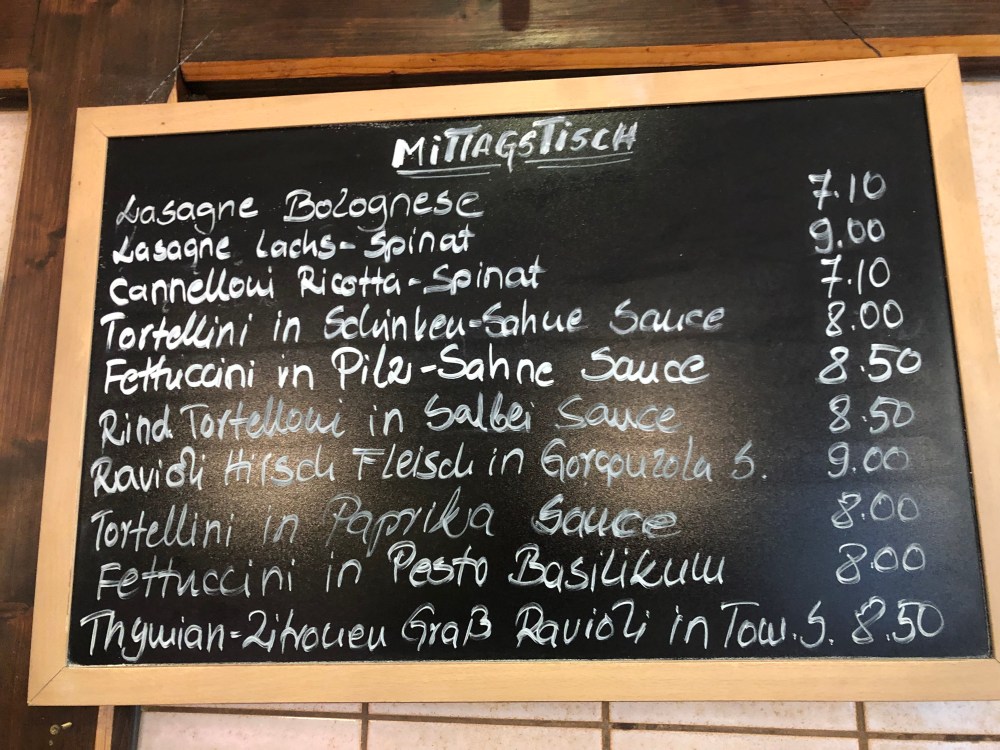 MITTAGSTISCH
Lasagne Bolognese 7.10
Lasagne Lachs-Spinat 9.00
Cannelloni Ricotta-Spinat 7.10
Tortellini in Schinken-Sahne Sauce 8.00
Fettuccini in Pilz-Sahne Sauce 8.50
Rind Tortelloni in Salbei Sauce 8.50
Ravioli Hirsch Fleisch in Gorgonzola S. 9.00
Tortellini in Paprika Sauce 8.00
Fettuccini in Pesto Basilikum 8.00
Thymian-Zitronen Graß Ravioli in Tom. S. 8.50